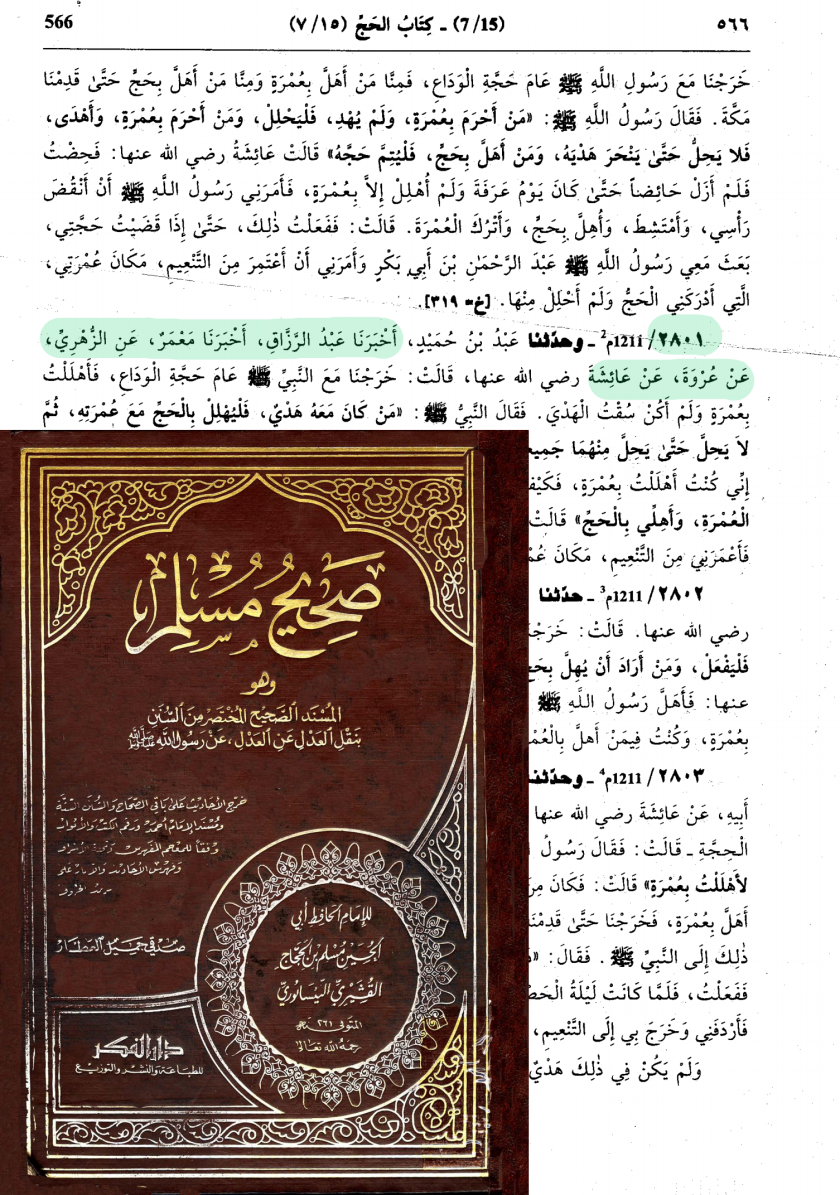 566 (7/15) ـ كِتَابُ الحَجِّ (٧/١٥) ٥٦٦
خَرَجْنَا مَعَ رَسُولِ اللَّهِ ﷺ عَامَ حَجَّةِ الْوَدَاعِ، فَمِنَّا مَنْ أَهَلَّ بِعُمْرَةٍ وَمِنَّا مَنْ أَهَلَّ بِحَجٍّ حَتَّىٰ قَدِمْنَا
مَكَّةَ. فَقَالَ رَسُولُ اللَّهِ ﷺ: «مَنْ أَحْرَمَ بِعُمْرَةٍ، وَلَمْ يُهْدِ، فَلْيَحْلِلْ، وَمَنْ أَحْرَمَ بِعُمْرَةٍ، وَأَهْدَى،
فَلا يَحِلُّ حَتَّىٰ يَنْحَرَ هَدْيَهُ، وَمَنْ أَهَلَّ بِحَجٍّ، فَلْيُتِمَّ حَجَّهُ» قَالَتْ عَائِشَةُ رضي الله عنها: فَحِضْتُ
فَلَمْ أَزَلْ حَائِضاً حَتَّىٰ كَانَ يَوْمُ عَرَفَةَ وَلَمْ أُهْلِلْ إِلاَّ بِعُمْرَةٍ، فَأَمَرَنِي رَسُولُ اللَّهِ ﷺ أَنْ أَنْقُضَ
رَأْسِي، وَأَمْتَشِطَ، وَأُهِلَّ بِحَجٍّ، وَأَتْرُكَ الْعُمْرَةَ. قَالَتْ: فَفَعَلْتُ ذٰلِكَ، حَتَّىٰ إِذَا قَضَيْتُ حَجَّتِي،
بَعَثَ مَعِي رَسُولُ اللَّهِ ﷺ عَبْدَ الرَّحْمٰنِ بْنَ أَبِي بَكْرٍ وَأَمَرَنِي أَنْ أَعْتَمِرَ مِنَ التَّنْعِيمِ، مَكَانَ عُمْرَتِي،
الَّتِي أَدْرَكَنِي الْحَجُّ وَلَمْ أَحْلِلْ مِنْهَا. [خ= ٣١٩].
٢٨٠١/ 1211م² ـ وحدّثنا عَبْدُ بْنُ حُمَيْدٍ، أَخْبَرَنَا عَبْدُ الرَّزَّاقِ، أَخْبَرَنَا مَعْمَرٌ، عَنِ الزُّهْرِيِّ،
عَنْ عُرْوَةَ، عَنْ عَائِشَةَ رضي الله عنها، قَالَتْ: خَرَجْنَا مَعَ النَّبِيِّ ﷺ عَامَ حَجَّةِ الْوَدَاعِ، فَأَهْلَلْتُ
بِعُمْرَةٍ وَلَمْ أَكُنْ سُقْتُ الْهَدْيَ. فَقَالَ النَّبِيُّ ﷺ: «مَنْ كَانَ مَعَهُ هَدْيٌ، فَلْيُهْلِلْ بِالْحَجِّ مَعَ عُمْرَتِهِ، ثُمَّ
لاَ يَحِلَّ حَتَّىٰ يَحِلَّ مِنْهُمَا
إِنِّي كُنْتُ أَهْلَلْتُ بِعُمْرَةٍ،
الْعُمْرَةِ، وَأَهِلِّي بِالْحَجِّ» قَالَتْ
فَأَعْمَرَنِي مِنَ التَّنْعِيمِ، مَكَانَ
٢٨٠٢/ 1211م³ ـ حدّثنا
رضي الله عنها. قَالَتْ:
فَلْيَفْعَلْ، وَمَنْ أَرَادَ أَنْ يُهِلَّ
عنها: فَأَهَلَّ رَسُولُ اللَّهِ ﷺ
بِعُمْرَةٍ، وَكُنْتُ فِيمَنْ أَهَلَّ
٢٨٠٣/ 1211م⁴ ـ وحدّثنا
أَبِيهِ، عَنْ عَائِشَةَ رضي الله عنها
الْحِجَّةِ ـ قَالَتْ: فَقَالَ رَسُولُ
لأَهْلَلْتُ بِعُمْرَةٍ» قَالَتْ: فَكَانَ
أَهَلَّ بِعُمْرَةٍ، فَخَرَجْنَا حَتَّى
ذٰلِكَ إِلَى النَّبِيِّ ﷺ. فَقَالَ:
فَفَعَلْتُ، فَلَمَّا كَانَتْ لَيْلَةُ
فَأَرْدَفَنِي وَخَرَجَ بِي إِلَى التَّنْعِيمِ،
وَلَمْ يَكُنْ فِي ذٰلِكَ هَدْيٌ
صَحِيحُ مُسْلِم
وهو
المُسْنَد الصَّحِيح المُخْتَصَر مِنَ السُّنَنِ
بنَقْلِ العَدْلِ عَنِ العَدْلِ، عَنْ رَسُولِ اللَّهِ ﷺ
خرج الأحاديث على باقي الصحاح والسنن الستة
ومسند الإمام أحمد ورقم الكتب والأبواب
وفقاً للمعجم المفهرس
صدقي جميل العطار
للإمام الحافظ أبي
الحسين مسلم بن الحجاج
القشيري النيسابوري
المتوفى ٢٦١ هـ
رحمه الله تعالى
دار الفكر
للطباعة والنشر والتوزيع